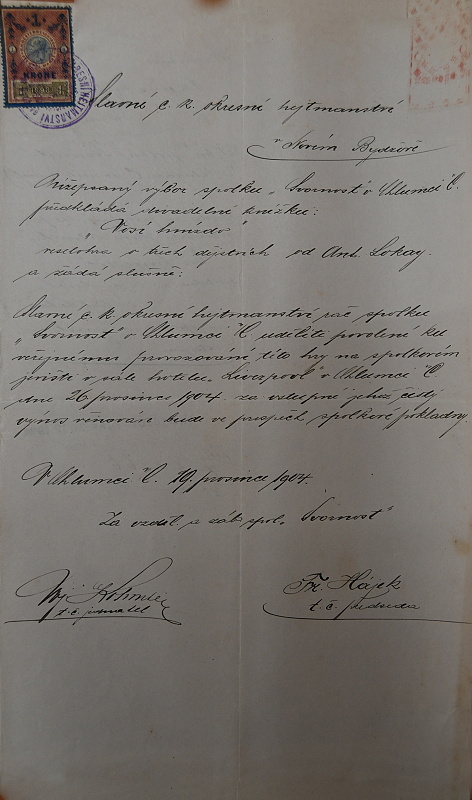 1
KRONE
Slavné c. k. okresní hejtmanství
v Novém Bydžově
Nížepsaný výbor spolku „Svornost" v Chlumci "/C.
předkládá divadelní knížku:
„Vosí hnízdo"
veselohra o třech dějstvích od Ant. Lokay.
a žádá slušně:
Slavné c. k. okresní hejtmanství rač spolku
„Svornost" v Chlumci "/C uděliti povolení ku
veřejnému provozování této hry na spolkovém
jevišti v sále hotelu „Liverpool" v Chlumci "/C.
dne 26 prosince 1904. za vstupné jehož čistý
výnos věnován bude ve prospěch spolkové pokladny.
V Chlumci "/C. 19. prosince 1904.
Za vzděl. a záb. spol. „Svornost"
Fr. Hájek
t. č. jednatel
t. č. předseda